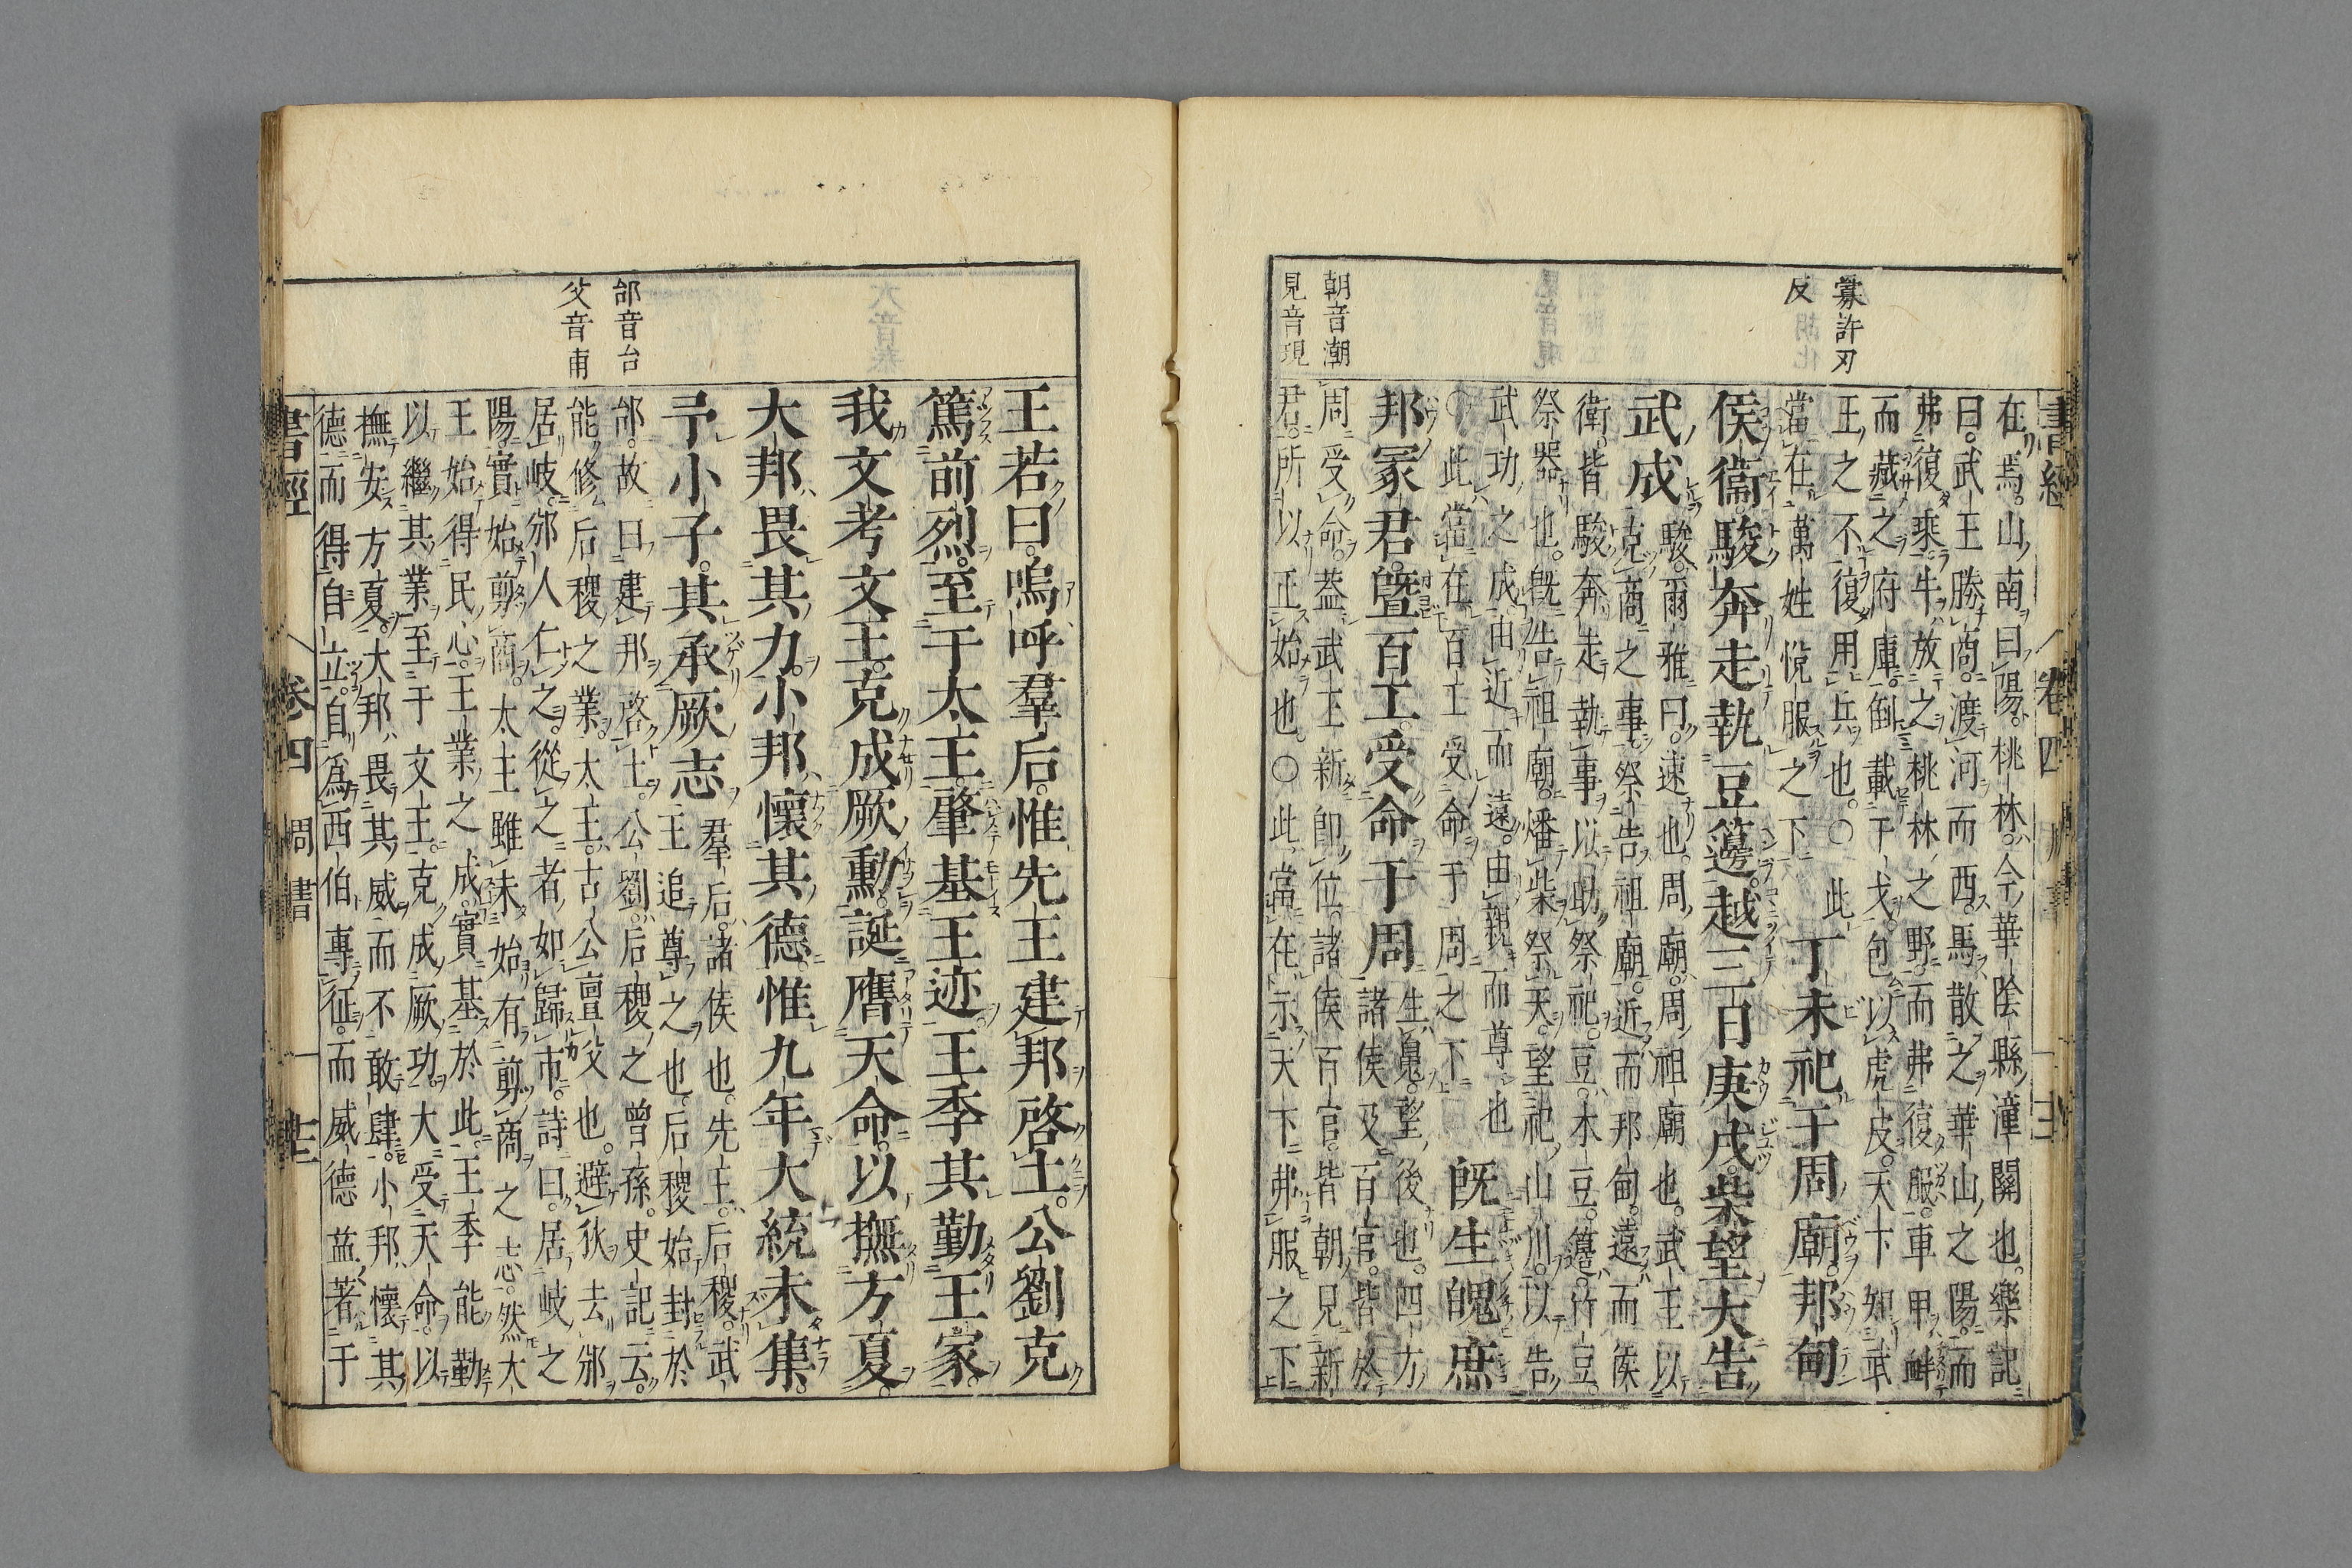 書經 卷四 周書
釁許刃
反
朝音潮
見音現
在焉。山南曰陽。桃林。今華陰縣潼關也。樂記
曰。武王勝商。渡河而西。馬散之華山之陽。而
弗復乘。牛放之桃林之野。而弗復服。車甲衅
而藏之府庫。倒載干戈。包以虎皮。天下知武
王之不復用兵也。○此
當在萬姓悅服之下
丁未祀于周廟。邦甸
侯衞駿奔走執豆籩。越三日庚戌。柴望大告
武成
駿。爾雅曰。速也。周廟。周祖廟也。武王以
克商之事。祭告祖廟。近而邦甸。遠而侯
衛。皆駿奔走執事。以助祭祀。豆。木豆。籩。竹豆。
祭器也。旣告祖廟。燔柴祭天。望祀山川。以告
武功之成。由近而遠。由親而尊也
○此當在百工受命于周之下
旣生魄庶
邦冢君。曁百工。受命于周
生魄。望後也。四方
諸侯及百官。皆於
周受命。蓋武王新即位。諸侯百官。皆朝見新
君。所以正始也。○此當在示天下弗服之下
邰音台
父音甫
王若曰。嗚呼羣后。惟先王建邦啓土。公劉克
篤前烈。至于太王。肇基王迹。王季其勤王家。
我文考文王。克成厥勳。誕膺天命。以撫方夏。
大邦畏其力。小邦懷其德。惟九年大統未集。
予小子。其承厥志
羣后。諸侯也。先王。后稷。武
王追尊之也。后稷始封於
邰。故曰建邦啓土。公劉。后稷之曾孫。史記云。
能修后稷之業。太王。古公亶父也。避狄去邠
居岐。邠人仁之。從之者。如歸市。詩曰。居岐之
陽。實始剪商。太王雖未始有剪商之志。然太
王始得民心。王業之成。實基於此。王季能勤
以繼其業。至于文王。克成厥功。大受天命。以
撫安方夏。大邦畏其威。而不敢肆。小邦懷其
德。而得自立。自爲西伯專征。而威德益著于
書經 卷四 周書